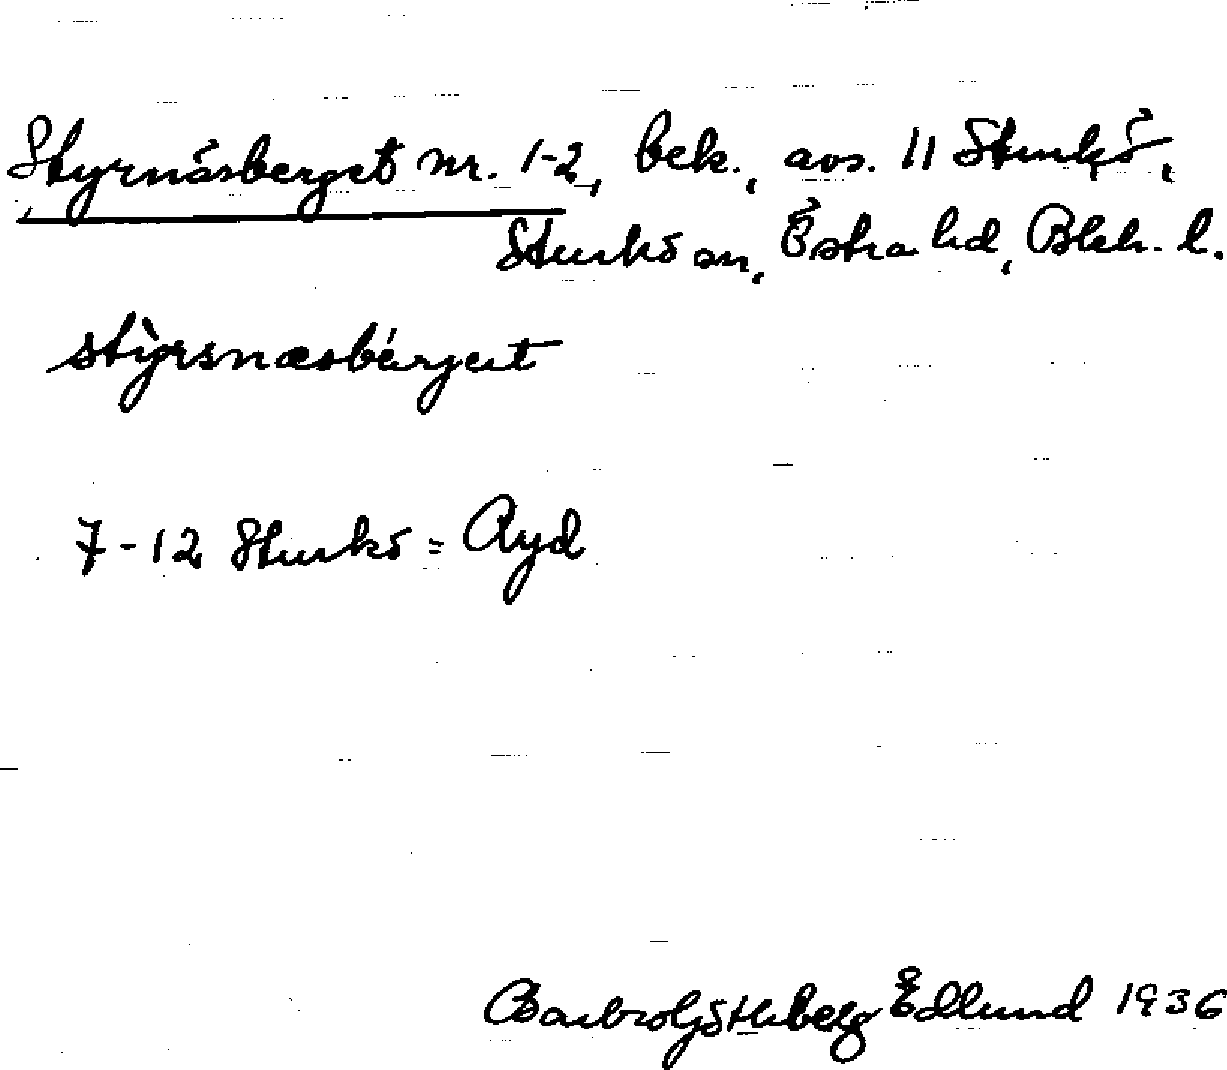 Styrnäsberget nr. 1-2, bek., avs. 11 Sturkö,
Sturkö sn, Östra hd, Blek. l.
stỳrsnæsbárjet
7-12 Sturkö = Ryd
Barbro Götheberg Edlund 1936